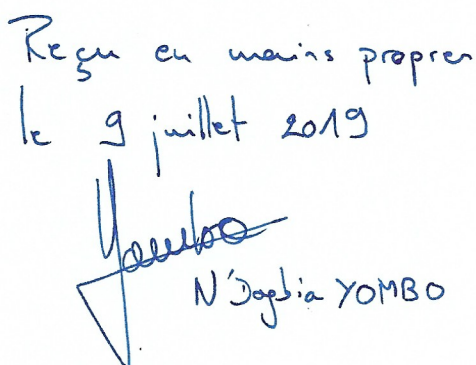 Reçu en mains propres
le 9 juillet 2019
Yombo
N'Dogbia YOMBO